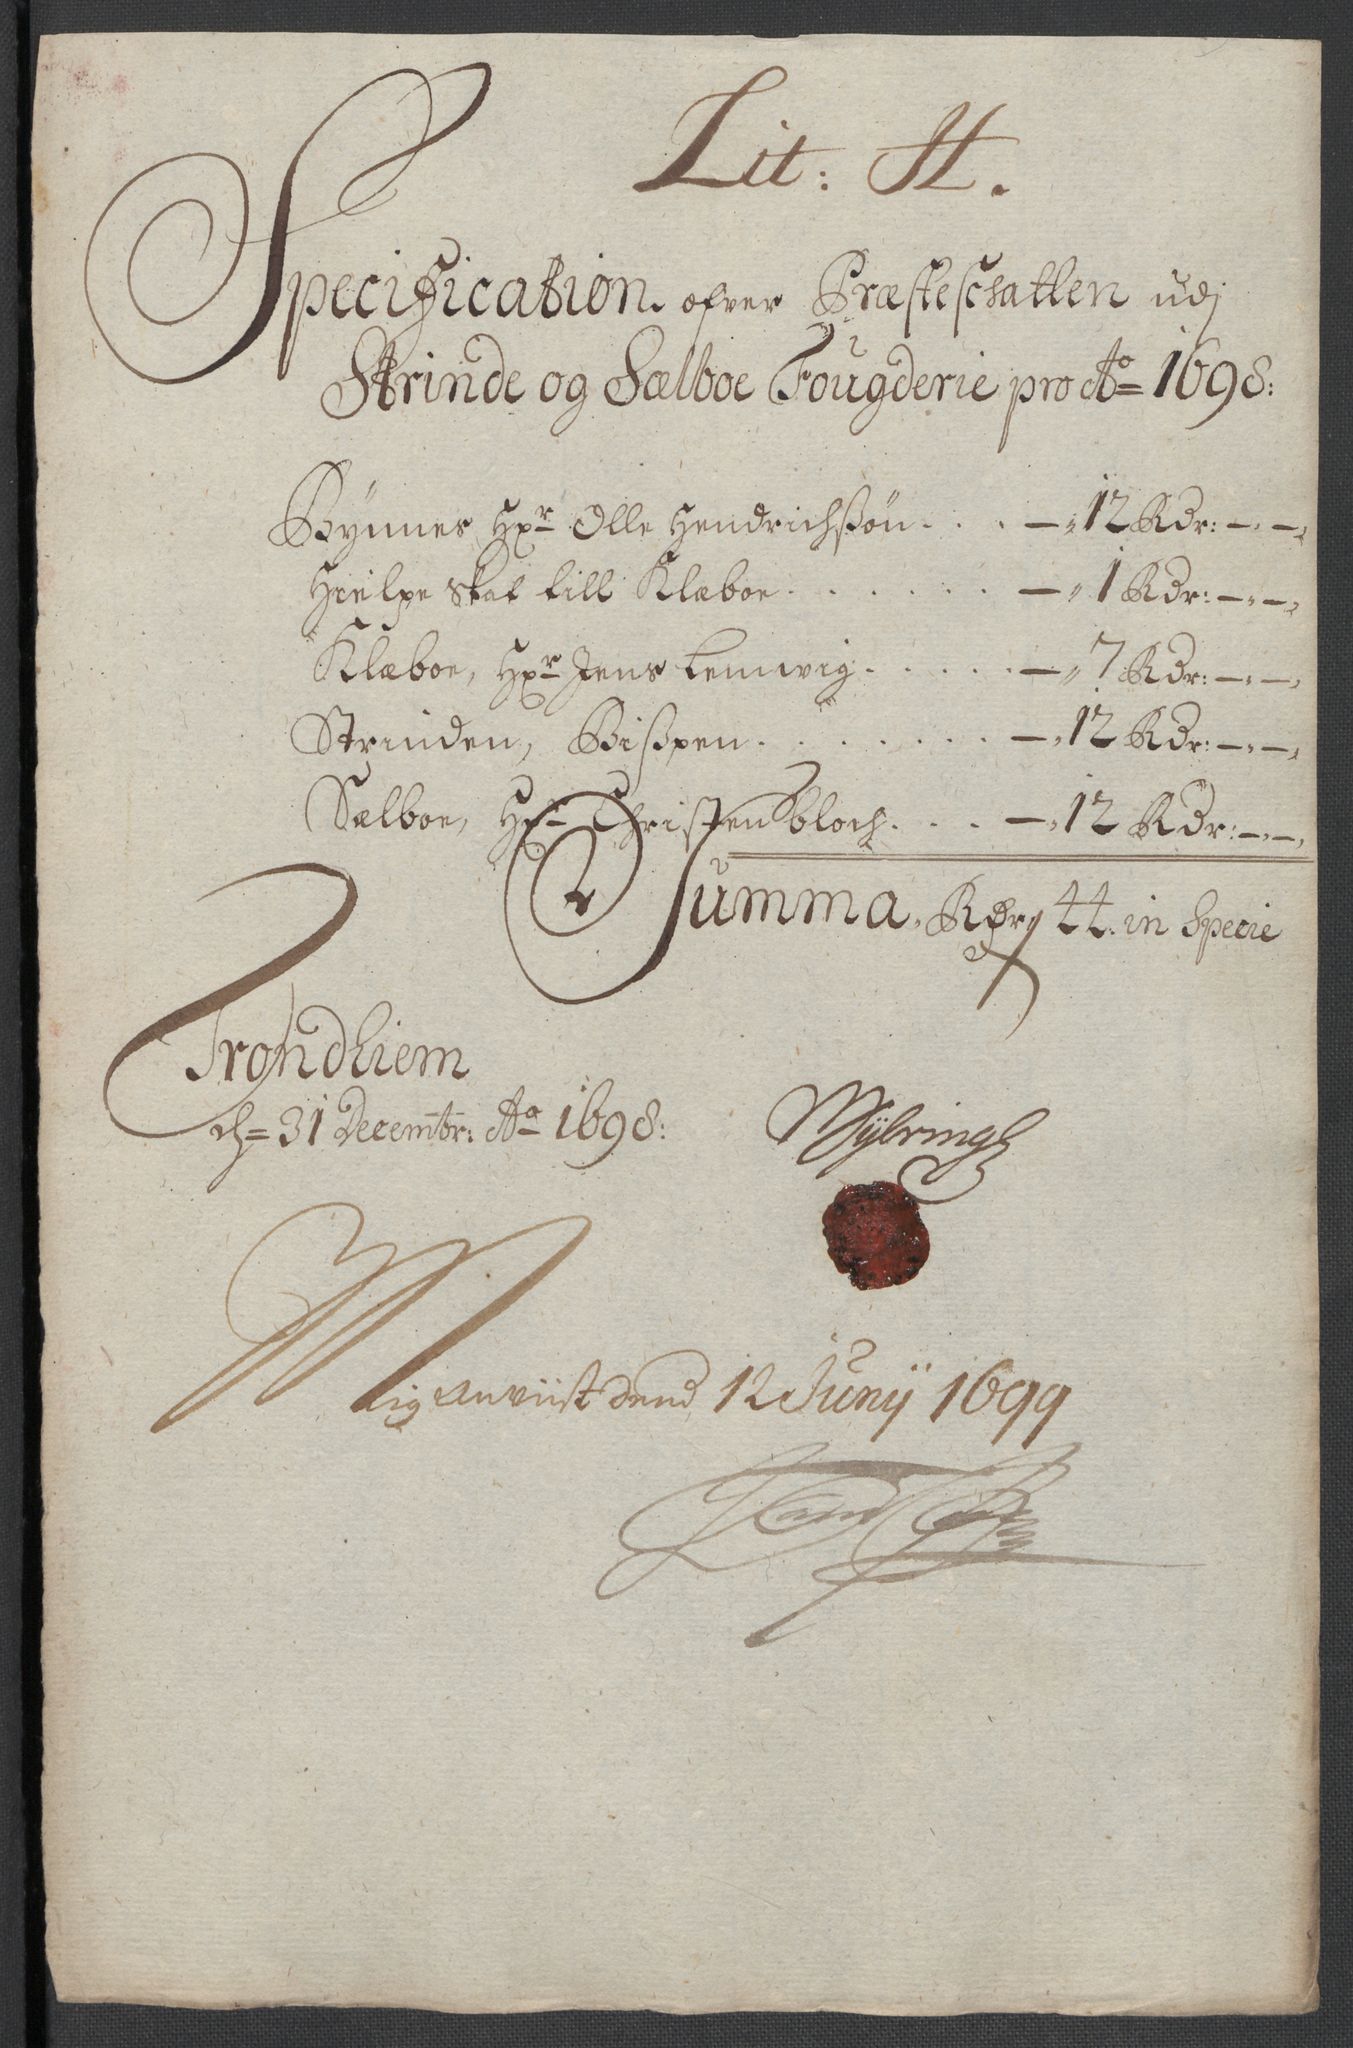 Lit: H.
Specification. ofver Præsteschatten udj
Strinde og Sælboe Fougderie pro Ao 1698:
Bÿnnes Hr Olle Hendrichßøn . . . —" 12 Rdr: —"—"
Hielpe skat till Klæboe . . . . . . . —" 1 Rdr: —"—"
Klæboe, Hr Jens Lemwig . . . . . . —" 7 Rdr: —"—"
Strinden, Bißpen . . . . . . . . —" 12 Rdr: —"—"
Sælboe, Hr Christen bloch . . . . —" 12 Rdr: —"—"
Summa, Rdr 44. in Specie
Trondhiem
d= 31 Decembr: Ao 1698:
Mig anviist dend 12 Junÿ 1699